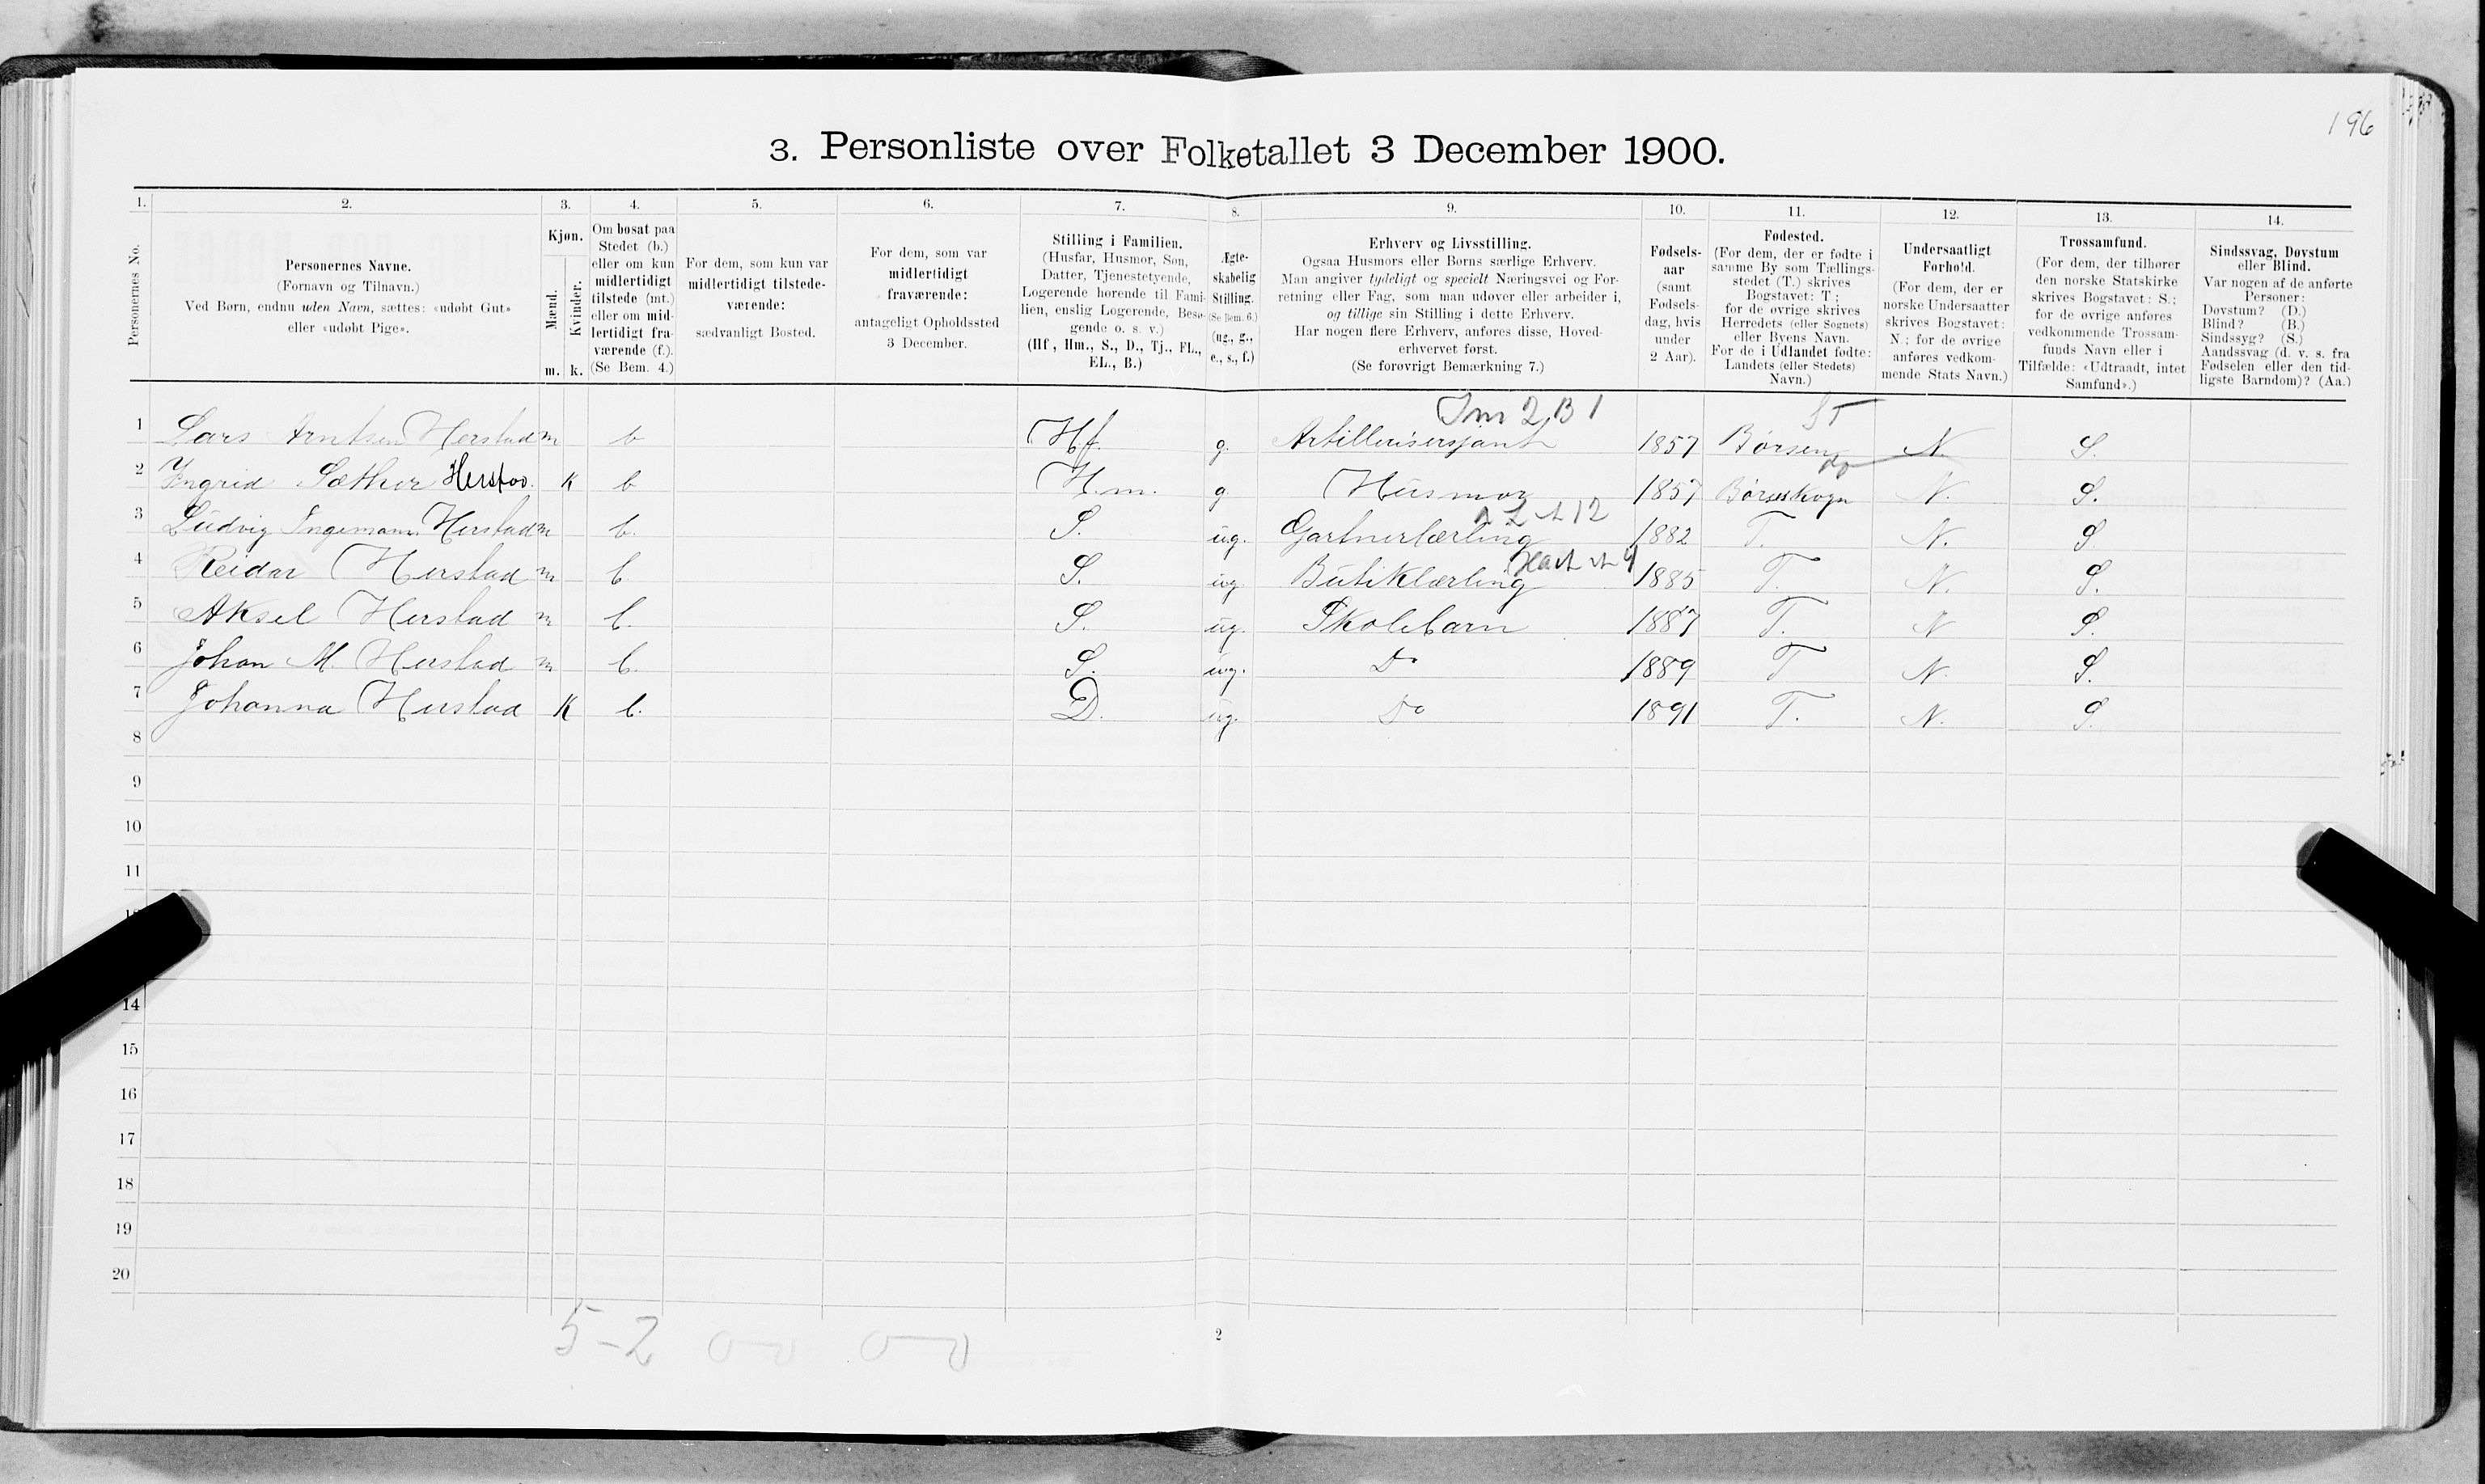 196
3. Personliste over Folketallet 3 December 1900.
1. 2. 3. 4. 5. 6. 7. 8. 9. 10. 11. 12. 13. 14.
Personernes No.
Personernes Navne.
(Fornavn og Tilnavn.)
Ved Børn, endnu uden Navn, sættes: «udøbt Gut»
eller «udøbt Pige».
Kjøn.
Mænd.
Kvinder.
m. k.
Om bosat paa
Stedet (b.)
eller om kun
midlertidigt
tilstede (mt.)
eller om mid-
lertidigt fra-
værende (f.).
(Se Bem. 4.)
For dem, som kun var
midlertidigt tilstede-
værende:
sædvanligt Bosted.
For dem, som var
midlertidigt
fraværende:
antageligt Opholdssted
3 December.
Stilling i Familien.
(Husfar, Husmor, Søn,
Datter, Tjenestetyende,
Logerende hørende til Fami-
lien, enslig Logerende, Besø-
gende o. s. v.)
(Hf., Hm., S., D., Tj., FL.,
EL., B.)
Ægte-
skabelig
Stilling.
(Se Bem. 6.)
(ug., g.,
e., s., f.)
Erhverv og Livsstilling.
Ogsaa Husmors eller Børns særlige Erhverv.
Man angiver tydeligt og specielt Næringsvei og For-
retning eller Fag, som man udøver eller arbeider i,
og tillige sin Stilling i dette Erhverv.
Har nogen flere Erhverv, anføres disse, Hoved-
erhvervet først.
(Se forøvrigt Bemærkning 7.)
Fødsels-
aar
(samt
Fødsels-
dag, hvis
under
2 Aar).
Fødested.
(For dem, der er fødte i
samme By som Tællings-
stedet (T.) skrives
Bogstavet: T;
for de øvrige skrives
Herredets (eller Sognets)
eller Byens Navn.
For de i Udlandet fødte:
Landets (eller Stedets)
Navn.)
Undersaatligt
Forhold.
(For dem, der er
norske Undersaatter
skrives Bogstavet:
N.; for de øvrige
anføres vedkom-
mende Stats Navn.)
Trossamfund.
(For dem, der tilhører
den norske Statskirke
skrives Bogstavet: S.;
for de øvrige anføres
vedkommende Trossam-
funds Navn eller i
Tilfælde: «Udtraadt, intet
Samfund».)
Sindssvag, Døvstum
eller Blind.
Var nogen af de anførte
Personer:
Døvstum? (D.)
Blind? (B.)
Sindssyg? (S.)
Aandssvag (d. v. s. fra
Fødselen eller den tid-
ligste Barndom)? (Aa.)
Im 2 B 1
1 Lars Arntsen Herstad m b Hf. g. Artillerisersjant 1857 Børsen N. S.
do
2 Ingrid Sæther Herstad. k b H.m. g. Husmor 1857 Børseskogn N. S.
3 Ludvig Ingemann Herstad m b. S. ug. Gartnerlærling 1882 T. N. S.
4 Reidar Herstad m b S. ug. Butiklærling 1885 T. N. S.
5 Aksel Herstad m b. S. ug. Skolebarn 1887 T. N S.
6 Johan M. Herstad m b. S. ug. Do 1889 T N. S.
7 Johanna Herstad K b. D. ug. Do 1891 T. N. S.
8
9
10
11
14
15
16
17
18
19
20
5-2 0-0 0-0
2